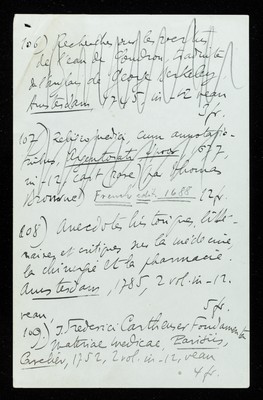 106) Recherches sur les vertus
de l'eau de Goudron, traduites
de l'anglais de George Berkeley
Amsterdam 1745 in-12 veau
5fr.
107) Religio medici cum annotatio-
nibus, 1677,
in-12 (par Thomas
Browne) French edit. 1688 12fr.
108) Anecdotes historiques, litté-
raires et critiques sur la médecine,
la chirurgie et la pharmacie.
Amsterdam, 1785, 2 vol. in-12.
veau, 5fr.
109) J. Frederici Cartheuser Fundamenta
Materiae medicae, Parisiis,
Cavelier, 1752, 2 vol. in-12, veau
4fr.